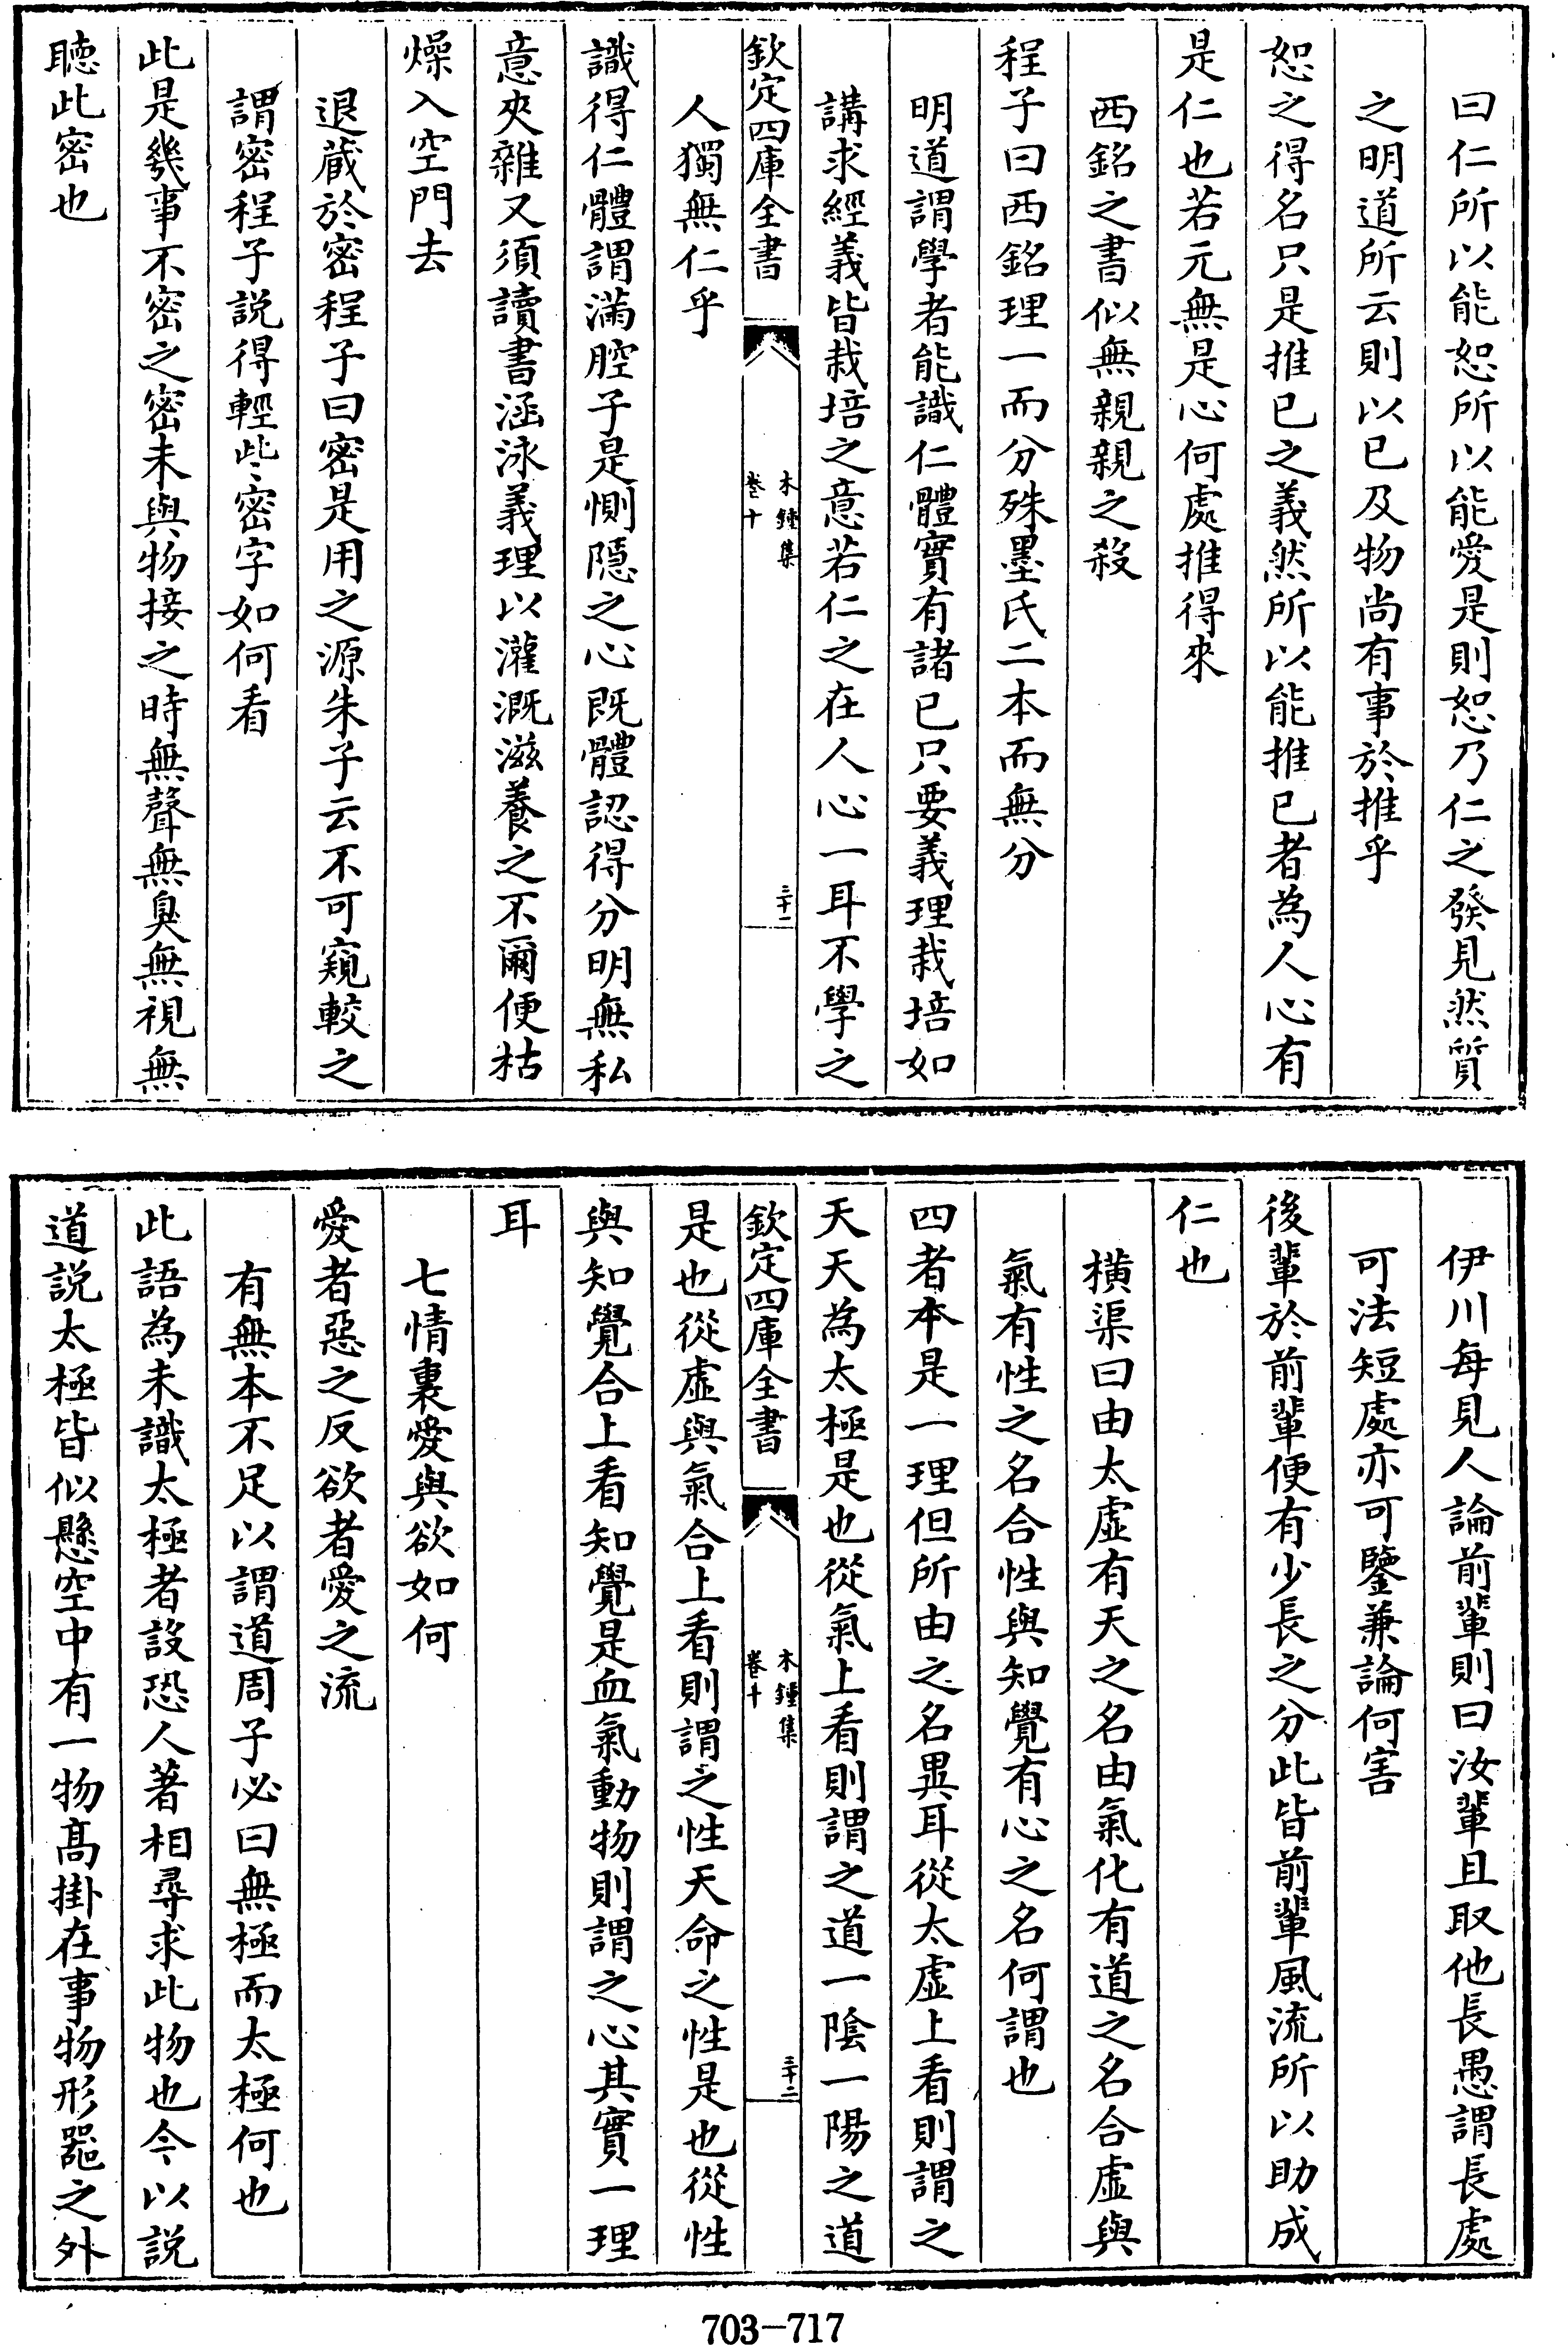 曰仁所以能恕所以能愛是則恕乃仁之發見然質
之明道所云則以已及物尚有事於推乎
恕之得名只是推已之義然所以能推已者為人心有
是仁也若元無是心何處推得來
西銘之書似無親親之殺
程子曰西銘理一而分殊墨氏二本而無分
明道謂學者能識仁體實有諸已只要義理栽培如
講求經義皆栽培之意若仁之在人心一耳不學之
欽定四庫全書
木鍾集
卷十
三十一
人獨無仁乎
識得仁體謂滿腔子是惻隱之心既體認得分明無私
意夾雜又須讀書涵泳義理以灌溉滋養之不爾便枯
燥入空門去
退藏於密程子曰密是用之源朱子云不可窺較之
謂密程子説得輕些密字如何看
此是幾事不密之密未與物接之時無聲無臭無視無
聽此密也
伊川每見人論前輩則曰汝輩且取他長愚謂長處
可法短處亦可鑒兼論何害
後輩於前輩便有少長之分此皆前輩風流所以助成
仁也
橫渠曰由太虛有天之名由氣化有道之名合虛與
氣有性之名合性與知覺有心之名何謂也
四者本是一理但所由之名異耳從太虛上看則謂之
天天為太極是也從氣上看則謂之道一陰一陽之道
欽定四庫全書
木鍾集
卷十
三十二
是也從虛與氣合上看則謂之性天命之性是也從性
與知覺合上看知覺是血氣動物則謂之心其實一理
耳
七情裏愛與欲如何
愛者惡之反欲者愛之流
有無本不足以謂道周子必曰無極而太極何也
此語為未識太極者設恐人著相尋求此物也今以説
道説太極皆似懸空中有一物高掛在事物形器之外
703-717